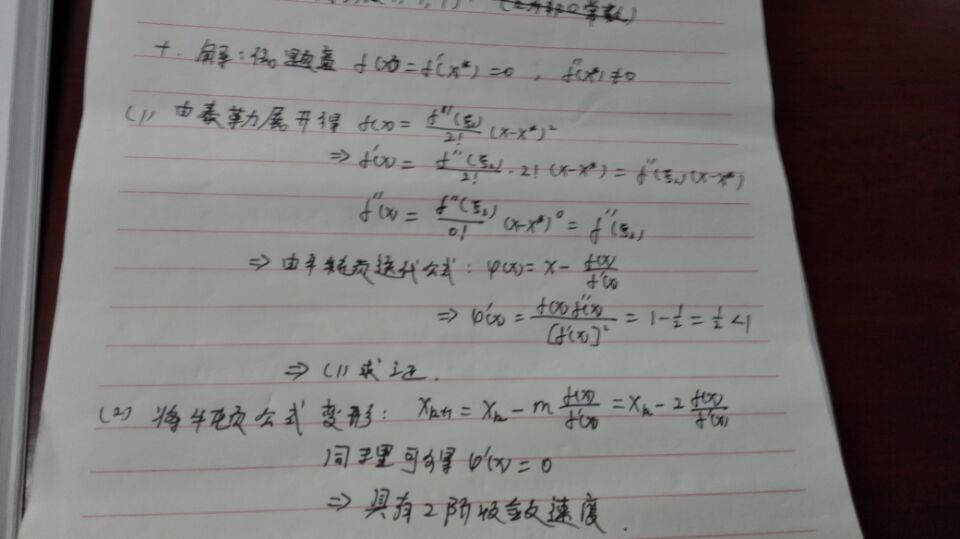 (2分部0常数)
十. 解: 依题意 f(x*)=f'(x*)=0 , f''(x*)≠0
(1) 由泰勒展开得 f(x) = f''(ξ₁)/2! (x-x*)²
⇒ f'(x) = f''(ξ₂)/2! · 2! (x-x*) = f''(ξ₂)(x-x*)
f''(x) = f''(ξ₃)/0! (x-x*)⁰ = f''(ξ₃)
⇒ 由牛顿迭代公式: φ(x) = x - f(x)/f'(x)
⇒ φ'(x) = f(x)f''(x)/[f'(x)]² = 1-1/2 = 1/2 <1
⇒ (1) 求证.
(2) 将牛顿公式变形: Xₖ₊₁ = Xₖ - m f(x)/f'(x) = Xₖ - 2 f(x)/f'(x)
同理可得 φ'(x) = 0
⇒ 具有2阶收敛速度.